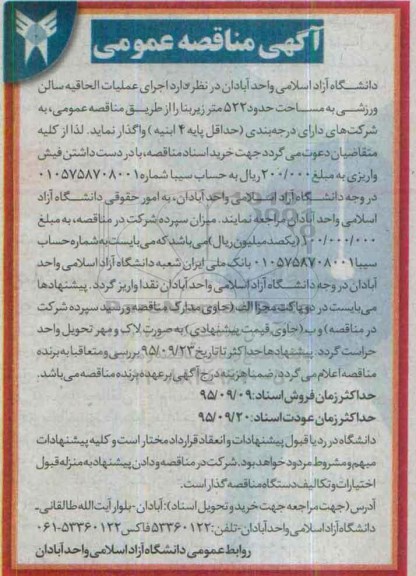 آگهی مناقصه عمومی
دانشگاه آزاد اسلامی واحد آبادان در نظر دارد اجرای عملیات الحاقیه سالن
ورزشی به مساحت حدود ۵۲۲ متر زیربنا را از طریق مناقصه عمومی، به
شرکت‌های دارای درجه‌بندی (حداقل پایه ۴ ابنیه) واگذار نماید. لذا از کلیه
متقاضیان دعوت می گردد جهت خرید اسناد مناقصه، با در دست داشتن فیش
واریزی به مبلغ ۲۰۰/۰۰۰ ریال به حساب سیبا شماره ۰۱۰۵۷۵۸۷۰۸۰۰۱
در وجه دانشگاه آزاد اسلامی واحد آبادان، به امور حقوقی دانشگاه آزاد
اسلامی واحد آبادان مراجعه نمایند. میزان سپرده شرکت در مناقصه، به مبلغ
۱۰۰/۰۰۰/۰۰۰ (یکصد میلیون ریال) می باشد که می بایست به شماره حساب
سیبا ۰۱۰۵۷۵۸۷۰۸۰۰۱ بانک ملی ایران شعبه دانشگاه آزاد اسلامی واحد
آبادان در وجه دانشگاه آزاد اسلامی واحد آبادان نقدا واریز گردد. پیشنهادها
می بایست در دو پاکت مجزا الف (حاوی مدارک مناقصه و رسید سپرده شرکت
در مناقصه) و ب (حاوی قیمت پیشنهادی) به صورت لاک و مهر تحویل واحد
حراست گردد. پیشنهادها حداکثر تا تاریخ ۹۵/۰۹/۲۳ بررسی و متعاقبا به برنده
مناقصه اعلام می گردد. ضمنا هزینه درج آگهی بر عهده برنده مناقصه می باشد.
حداکثر زمان فروش اسناد: ۹۵/۰۹/۰۹
حداکثر زمان عودت اسناد: ۹۵/۰۹/۲۰
دانشگاه در رد یا قبول پیشنهادات و انعقاد قرارداد مختار است و کلیه پیشنهادات
مبهم و مشروط مردود خواهد بود. شرکت در مناقصه و دادن پیشنهاد به منزله قبول
اختیارات و تکالیف دستگاه مناقصه گذار است.
آدرس (جهت مراجعه جهت خرید و تحویل اسناد): آبادان - بلوار آیت الله طالقانی -
دانشگاه آزاد اسلامی واحد آبادان - تلفن: ۵۳۳۶۰۱۲۲ فاکس ۵۳۳۶۰۱۲۲-۰۶۱
روابط عمومی دانشگاه آزاد اسلامی واحد آبادان